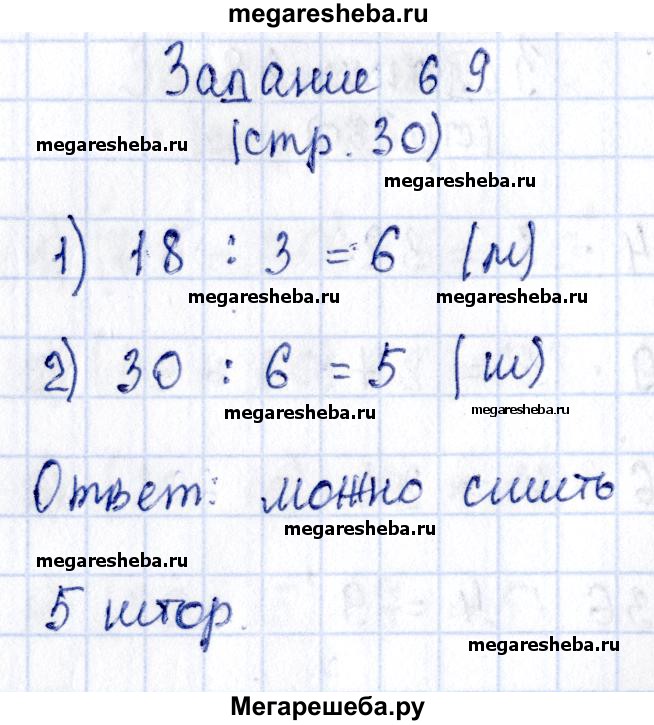 megaresheba.ru
Задание 69
megaresheba.ru
(стр. 30)
megaresheba.ru
1) 18 : 3 = 6 (м)
megaresheba.ru megaresheba.ru
2) 30 : 6 = 5 (ш)
megaresheba.ru megaresheba.ru
Ответ: можно сшить
megaresheba.ru
megaresheba.ru
5 штор.
megaresheba.ru
Мегарешеба.ру